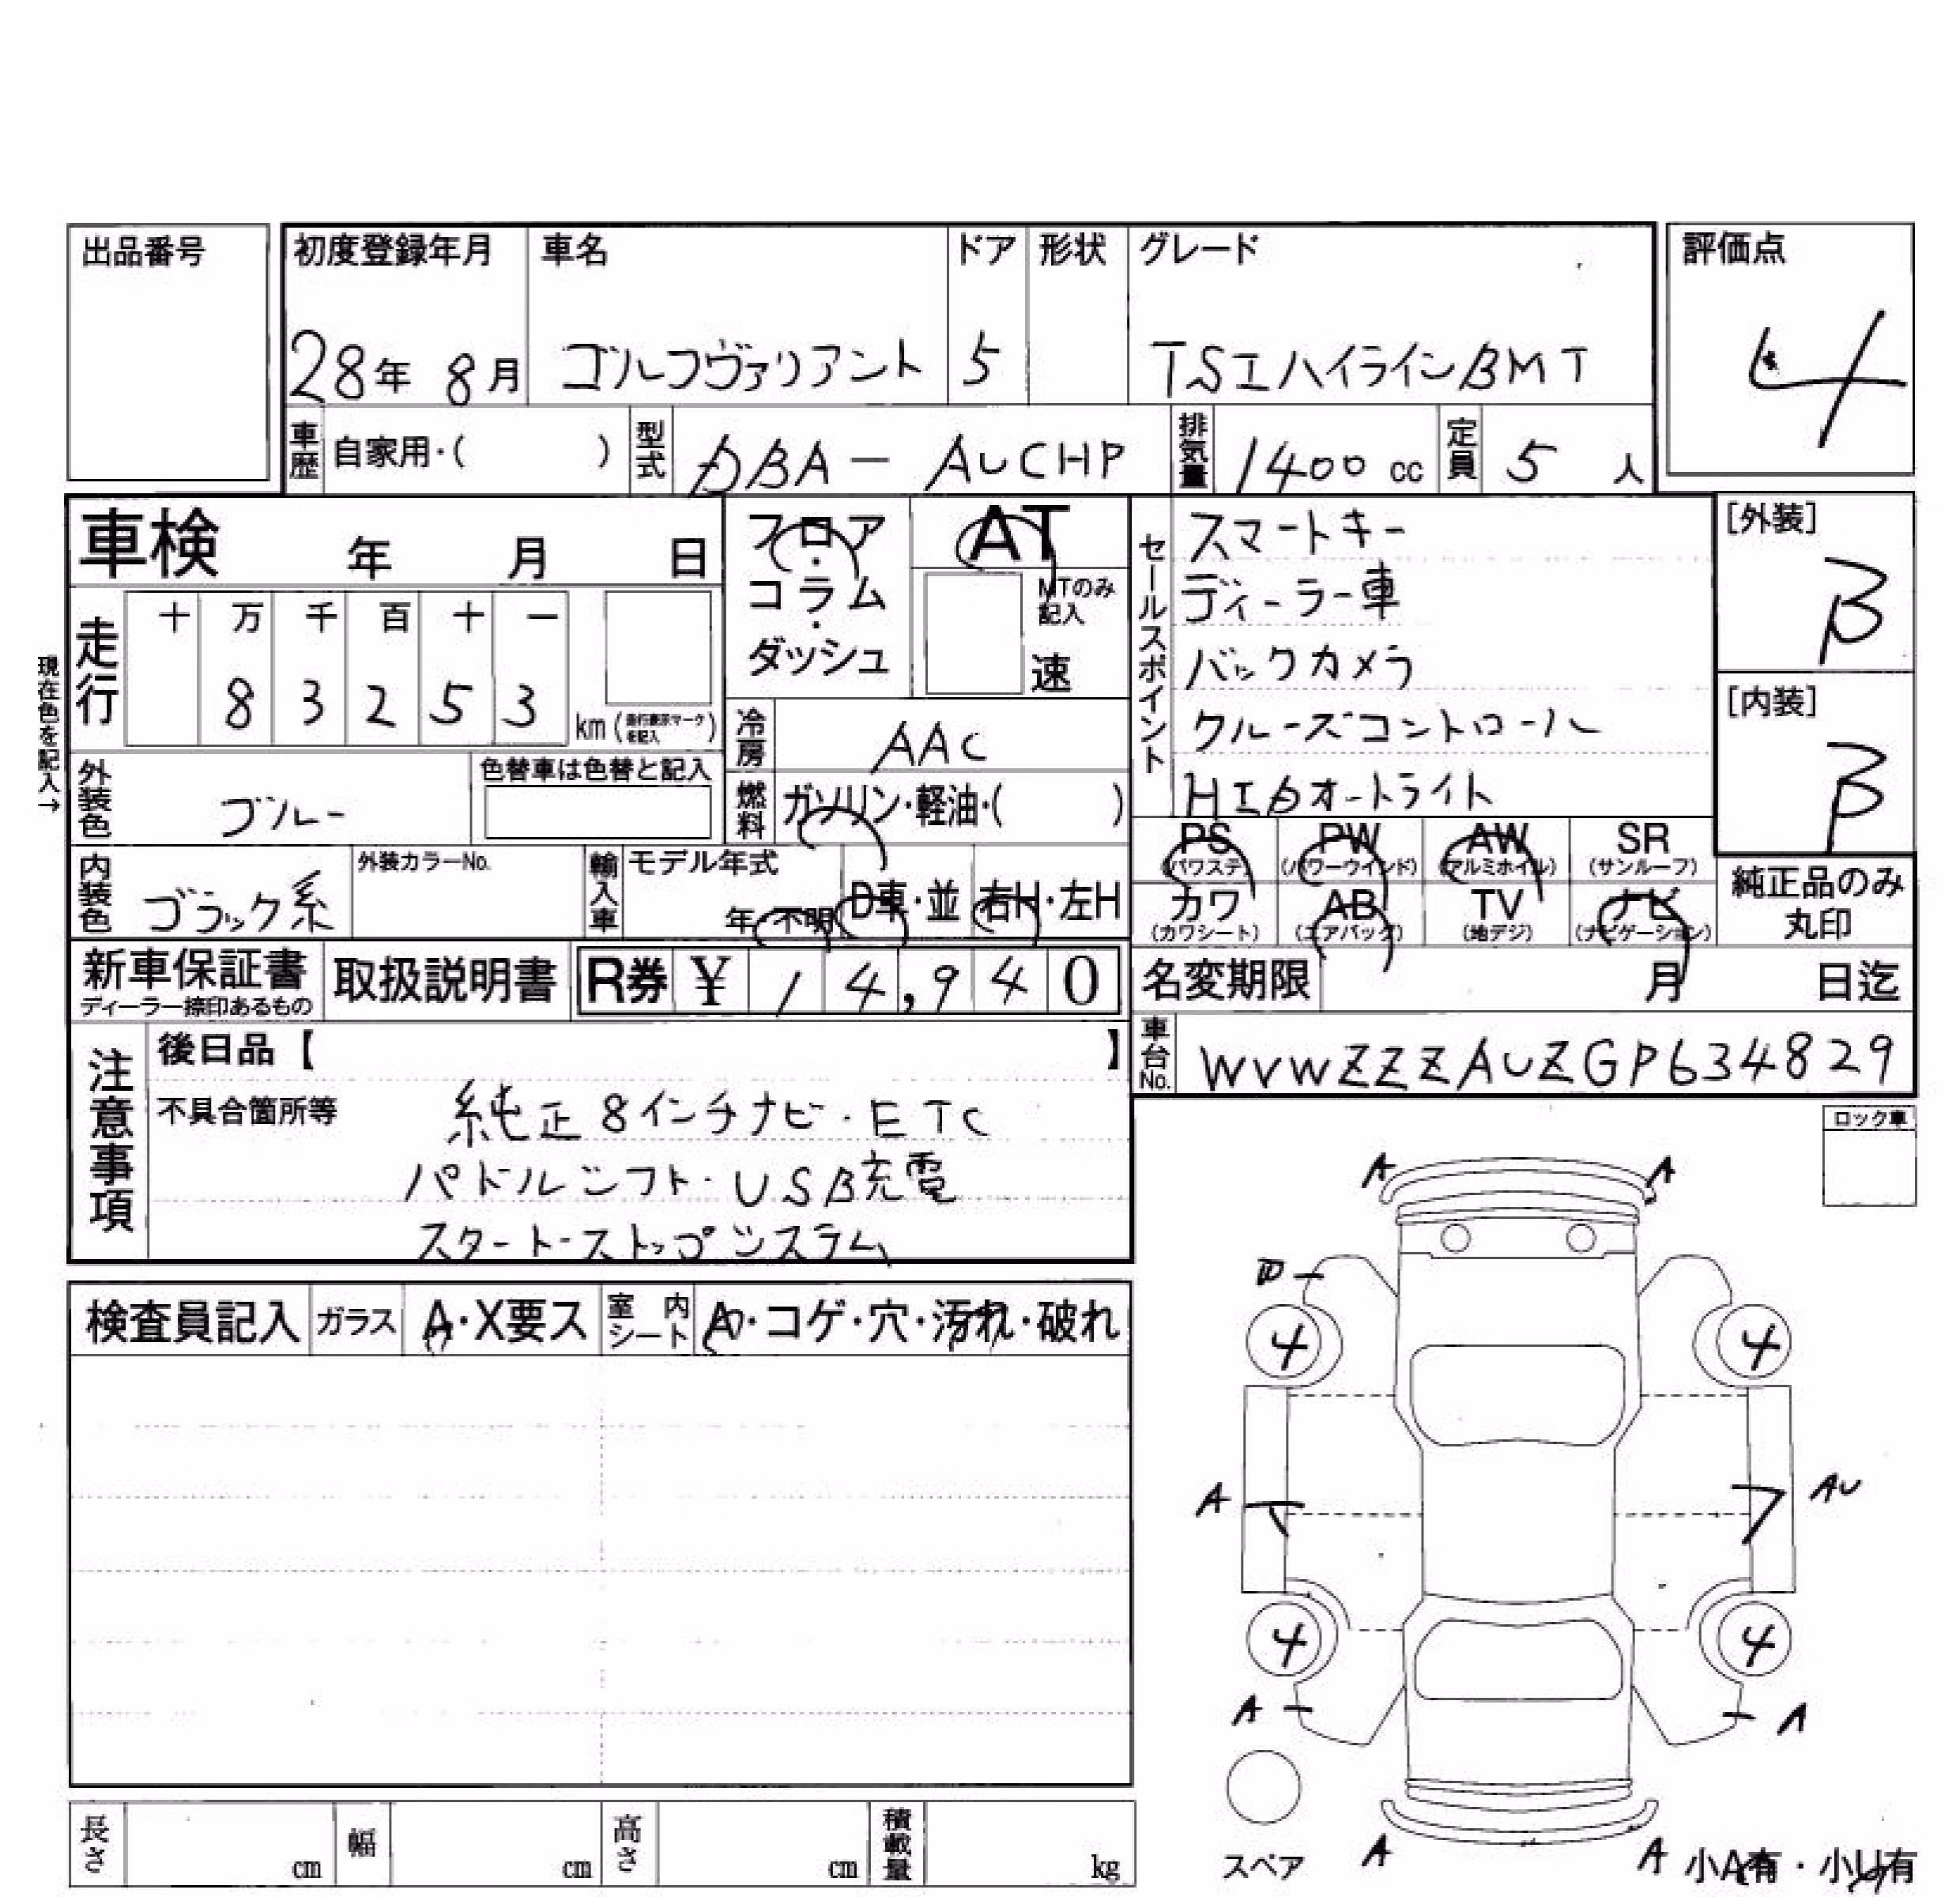 出品番号
初度登録年月 車名 ドア 形状 グレード 評価点
28年 8月 ゴルフヴァリアント 5 TSIハイラインBMT 4
車歴 自家用・( ) 型式 DBA-AUCHP 排気量 1400cc 定員 5人
車検 年 月 日
フロア・コラム・ダッシュ
AT
MTのみ記入
速
セールスポイント
スマートキー
ディーラー車
バックカメラ
クルーズコントロール
HIDオートライト
[外装]
B
[内装]
B
現在色を記入→
走行 十 万 千 百 十 一
8 3 2 5 3 km(走行表示マークを記入)
冷房 AAC
外装色 ブルー 色替車は色替と記入
燃料 ガソリン・軽油・( )
内装色 ブラック系 外装カラーNo.
輸入車 モデル年式 年・不明 D車・並 右H・左H
PS (パワステ) PW (パワーウインド) AW (アルミホイル) SR (サンルーフ)
カワ (カワシート) AB (エアバッグ) TV (地デジ) ナビ (ナビゲーション)
純正品のみ
丸印
新車保証書 取扱説明書 R券 ¥ 14,940
ディーラー捺印あるもの
名変期限 月 日迄
車台No. WVWZZZAUZGP634829
注意事項
後日品【 】
不具合箇所等 純正8インチナビ・ETC
パドルシフト・USB充電
スタート・ストップシステム
ロック車
検査員記入 ガラス A・X要ス 室内シート A・コゲ・穴・汚れ・破れ
A A
4 4
A AU
4 4
A A
スペア
A A 小A有・小U有
長さ cm 幅 cm 高さ cm 積載量 kg